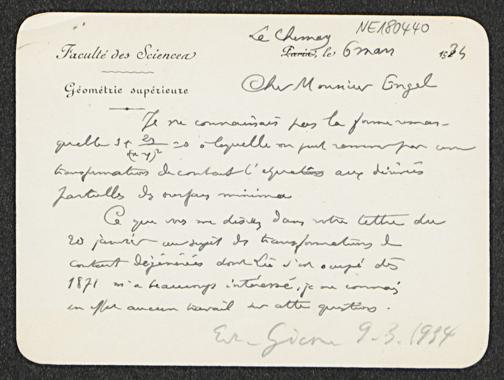 NE180440
Le Chesnay
Faculté des Sciences
Paris, le 6 mars 1934
Géométrie supérieure
Cher Monsieur Engel
Je ne connaissais pas la forme remar-
quable s + 2z/(x-y)² = 0 à laquelle on peut ramener par une
transformation de contact l'équation aux dérivées
partielles des surfaces minima
Ce que vous me disiez dans votre lettre du
20 janvier au sujet des transformations de
contact dégénérées dont Lie s'est occupé dès
1871 m'a beaucoup intéressé, je ne connais
en effet aucun travail sur cette question.
9.3.1934